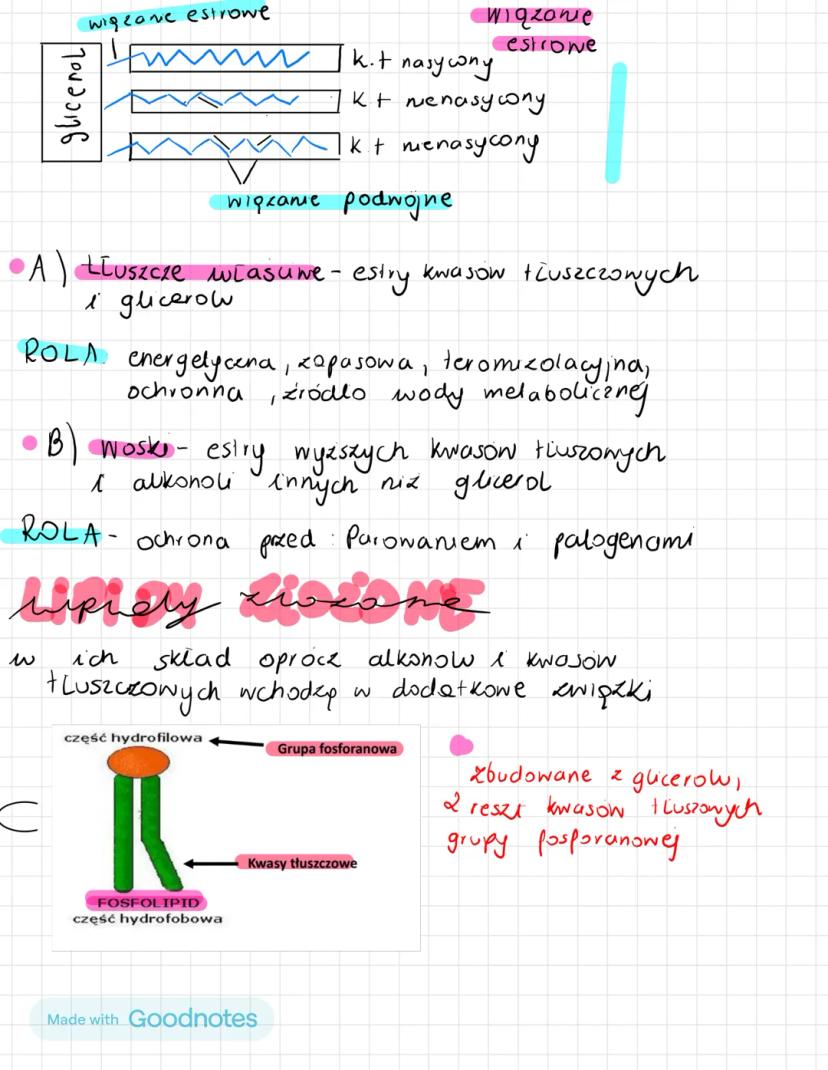 wiązanie estrowe
wiązanie
estrowe
glicerol
k.t nasycony
k t nienasycony
k t nienasycony
wiązanie podwójne
A) tłuszcze własciwe - estry kwasów tłuszczowych
i glicerolu
ROLA energetyczna, zapasowa, termoizolacyjna,
ochronna, źródło wody metabolicznej
B) woski - estry wyższych kwasów tłuszowych
i alkoholi innych niż glicerol
ROLA - ochrona przed: Parowaniem i patogenami
LIPIDY ZŁOŻONE
w ich skład oprócz alkoholów i kwasów
tłuszczowych wchodzą w dodatkowe związki
część hydrofilowa
Grupa fosforanowa
Kwasy tłuszczowe
FOSFOLIPID
część hydrofobowa
zbudowane z glicerolu,
2 reszt kwasów tłuszowych
grupy fosforanowej
Made with Goodnotes